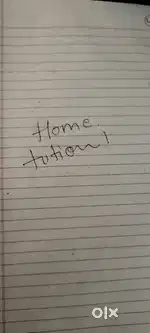 Home.
tution!
olx